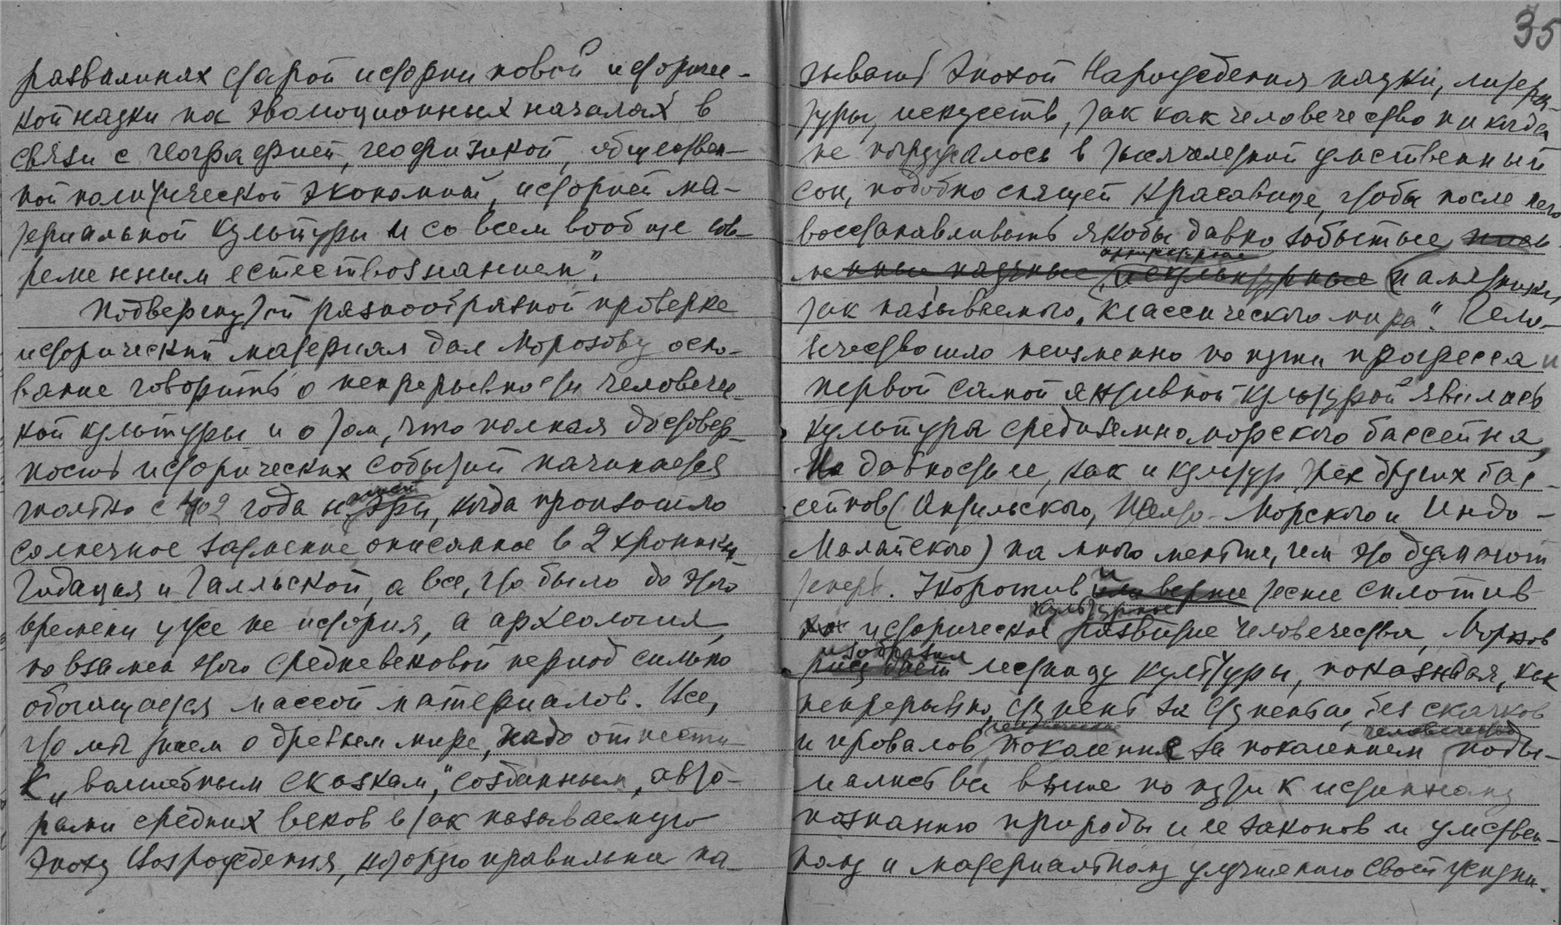 развалинах старой истории новой историчес-
кой науки на эволюционных началах в
связи с географией, геофизикой, обществен-
ной политической экономией, историей ма-
териальной культуры и со всем вообще сов-
ременным естествознанием".
Подвергнутый разнообразной проверке
исторический материал дал Морозову осно-
вание говорить о непрерывности человечес-
кой культуры и о том, что полная достовер-
ность исторических событий начинается
только с 402 года н эры, когда произошло
солнечное затмение описанное в 2 хрониках
Гидация и Галльской, а все, что было до этого
времени уже не история, а археология,
но взамен этого средневековой период сильно
обогащается массой материалов. Все,
что мы знаем о древнем мире, надо отнести
к „волшебным сказкам", созданным авто-
рами средних веков в так называемую
эпоху Возрождения, которую правильна на-
35
зывать эпохой Нарождения науки, литера-
туры, искусств, так как человечество никогда
не погружалось в тысячелетний умственный
сон, подобно спящей красавице, чтобы после него
восстанавливать якобы давно забытые
памятники
так называемого „классического мира". Чело-
вечество шло неизменно по пути прогресса и
первой самой активной культурой явилась
культура средиземноморского бассейна,
Но давность ее, как и культур трех других бас-
сейнов (Антильского, Желто-Морского и Индо-
Малайского) на много меньше, чем это думают
теперь. Укоротив и или вернее теснее сплотив
культурные
историческое развитие человечества, Морозов
изобразил
лестницу культуры, показывая, как
непрерывно, ступень за ступенью, без скачков
человечество
и провалов поколение за поколением поды-
мались все выше по пути к истинному
познанию природы и ее законов и умствен-
ному и материальному улучшению своей жизни.